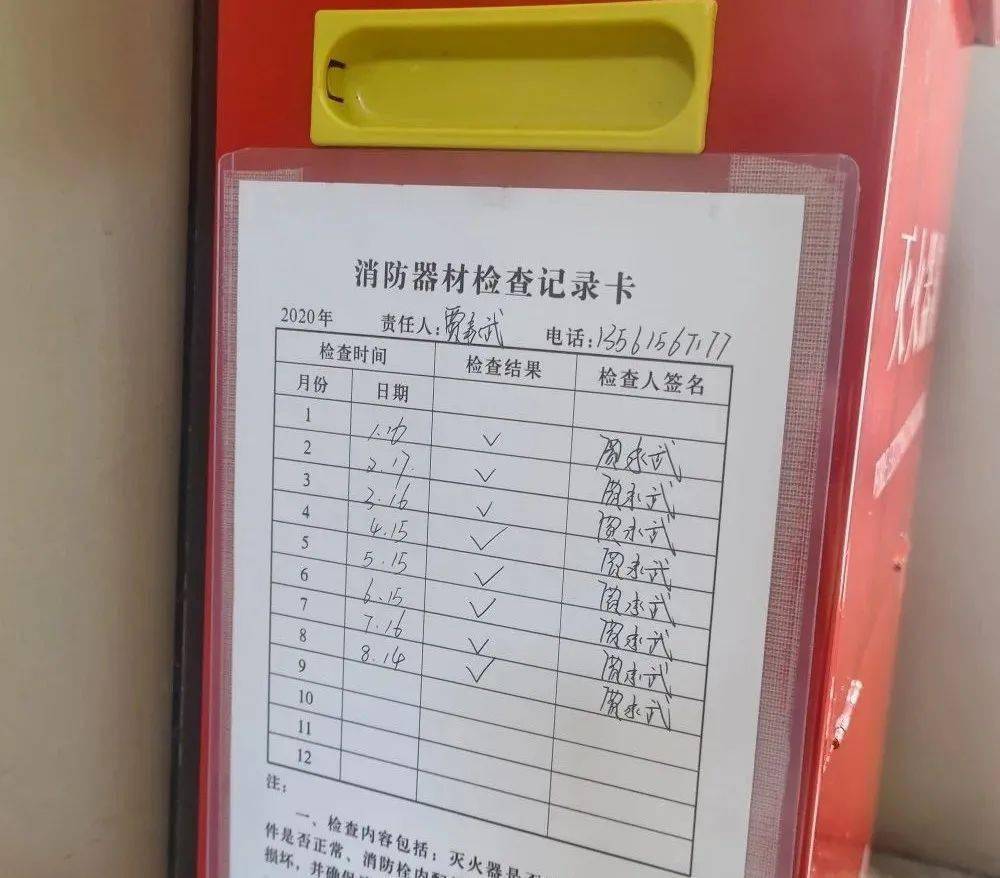 消防器材检查记录卡
2020年 责任人: 贾永武 电话:
检查时间 检查结果 检查人签名
月份 日期
1 1.16 ✓ 贾永武
2 2.17. ✓ 贾永武
3 3.16 ✓ 贾永武
4 4.15 ✓ 贾永武
5 5.15 ✓ 贾永武
6 6.15 ✓ 贾永武
7 7.16 ✓ 贾永武
8 8.14 ✓ 贾永武
9
10
11
12
注:
一、检查内容包括:灭火器是否
件是否正常、消防栓内配
损坏,并确保
灭火器